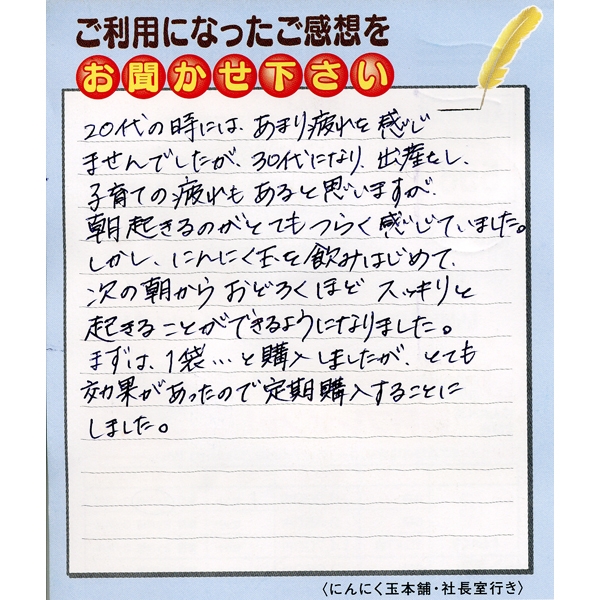 ご利用になったご感想を
お聞かせ下さい
20代の時には、あまり疲れを感じ
ませんでしたが、30代になり、出産をし、
子育ての疲れもあると思いますが、
朝起きるのがとてもつらく感じていました。
しかし、にんにく玉を飲みはじめて、
次の朝からおどろくほどスッキリと
起きることができるようになりました。
まずは、1袋…と購入しましたが、とても
効果があったので定期購入することに
しました。
〈にんにく玉本舗・社長室行き〉